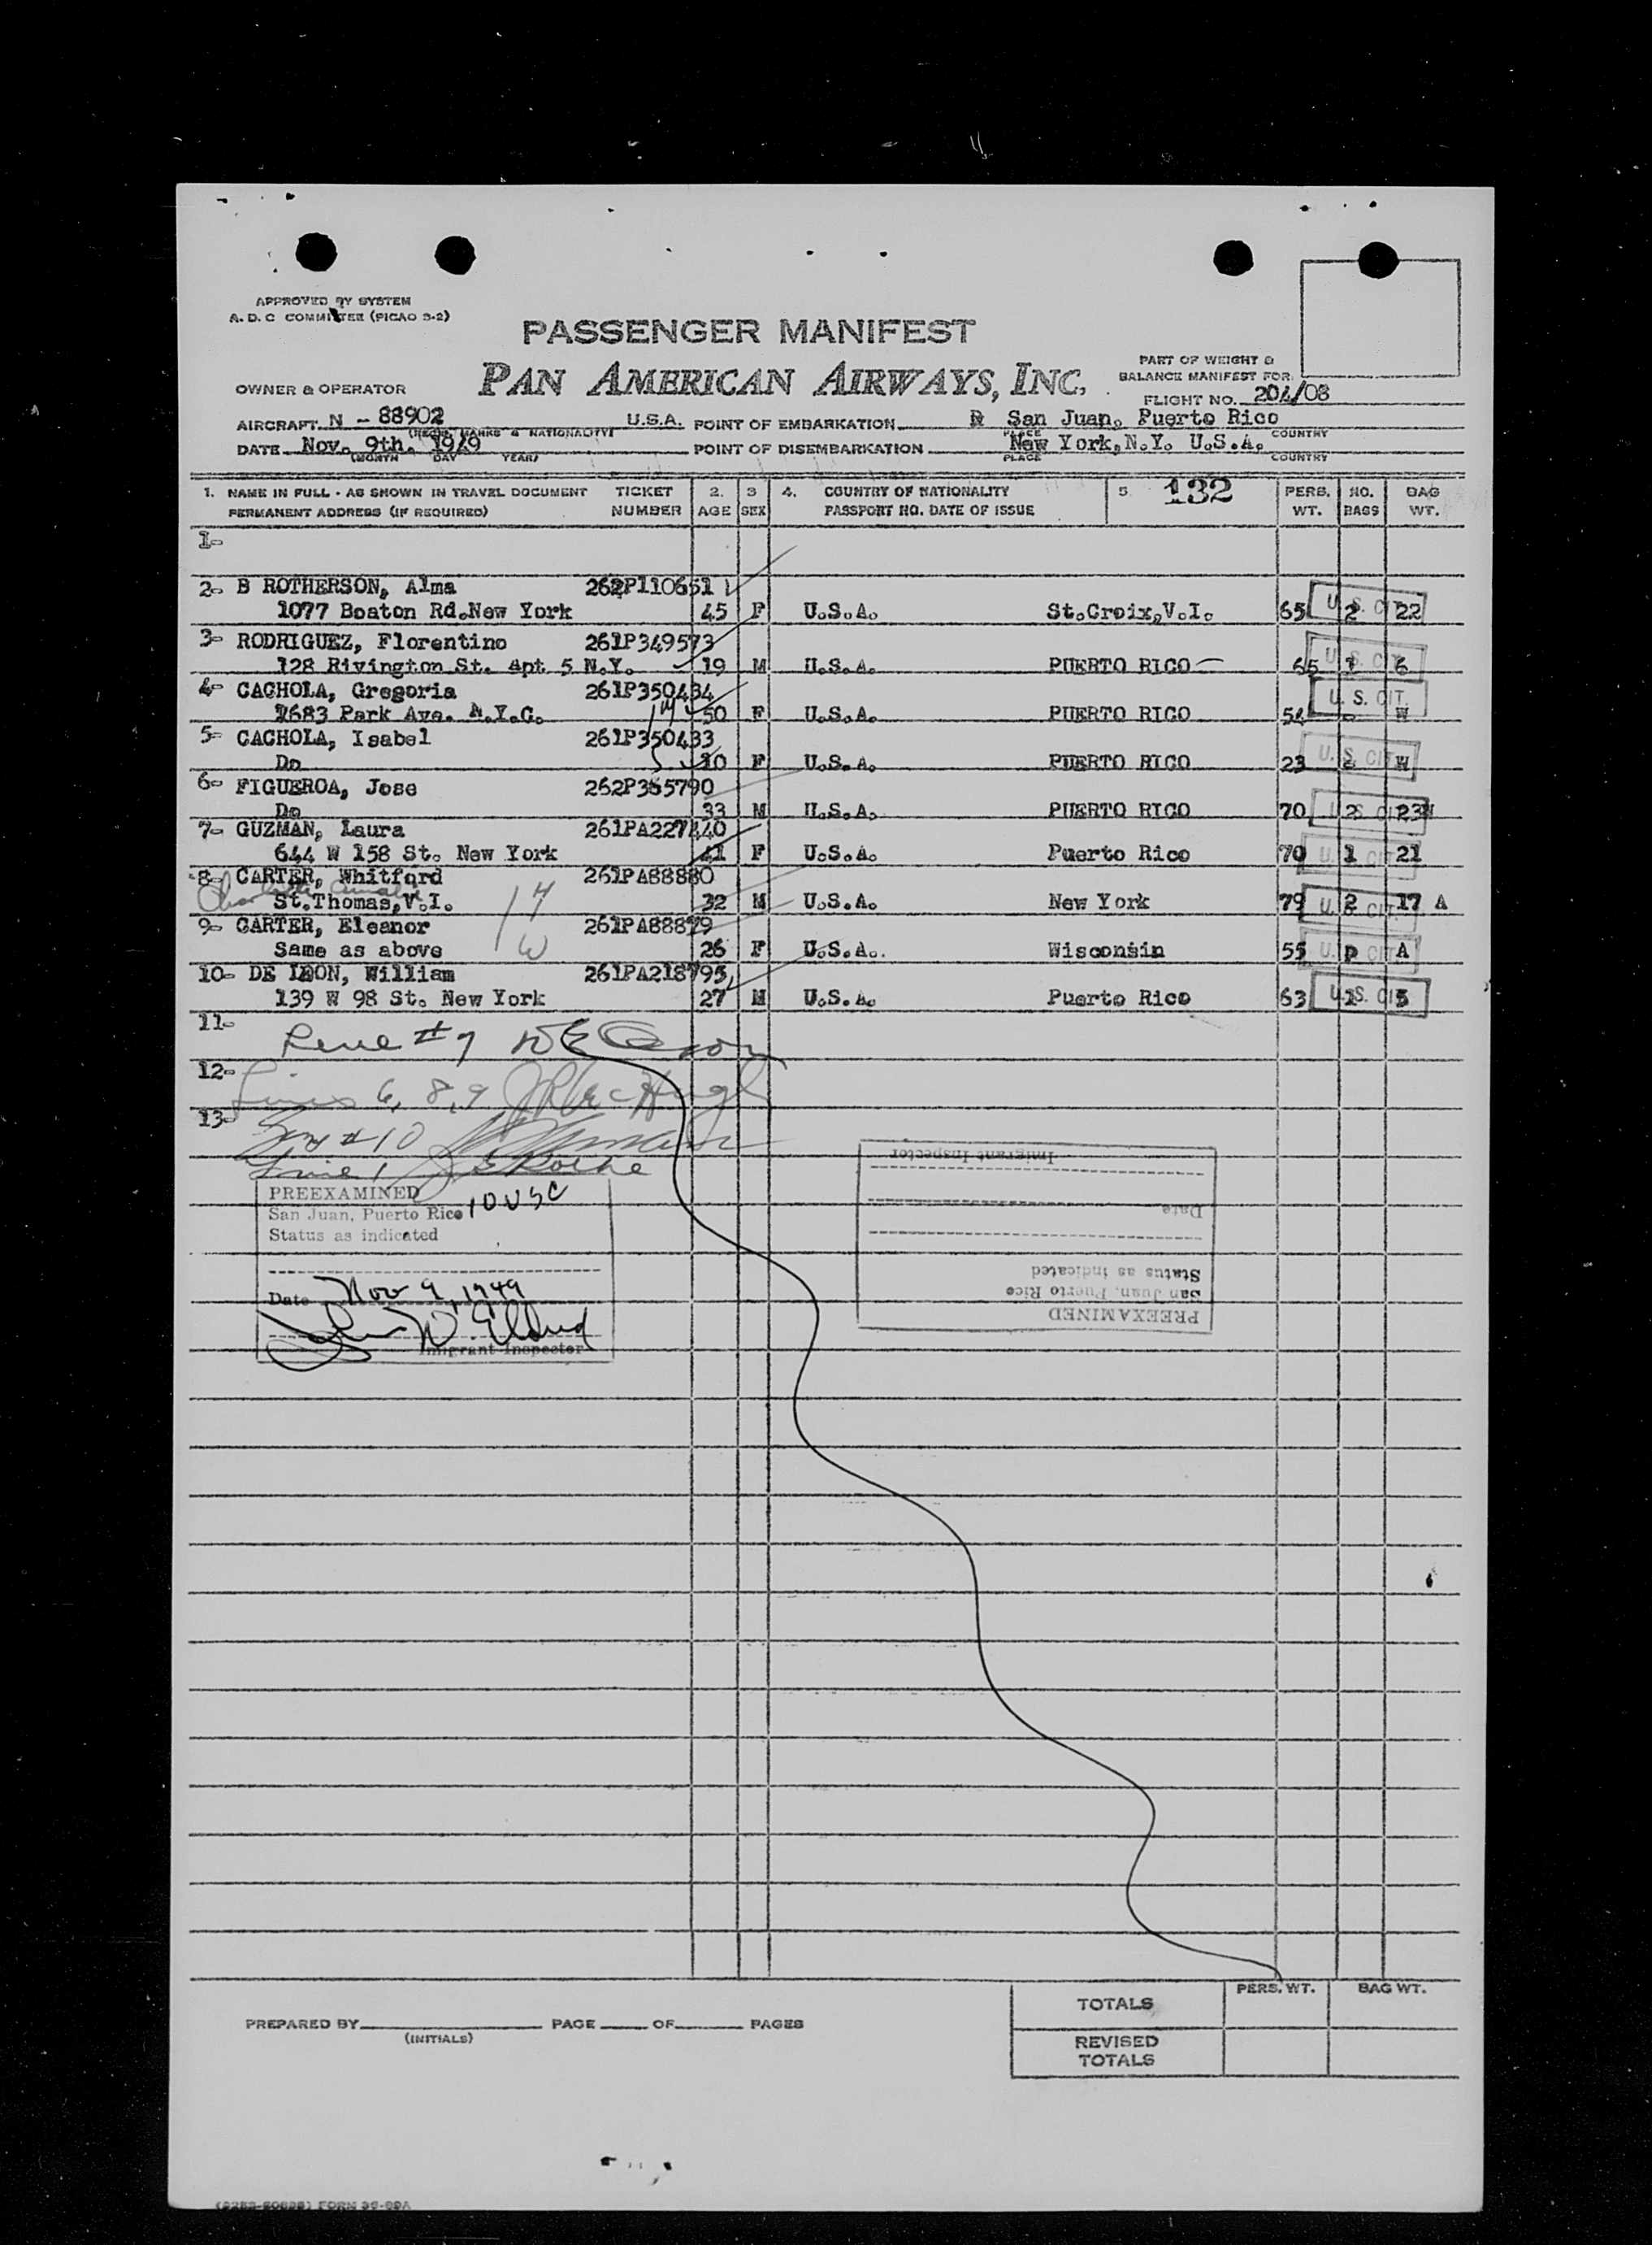 APPROVED BY SYSTEM
A. D. C COMMITTEE (PICAO 9-2)
PASSENGER MANIFEST
PAN AMERICAN AIRWAYS, INC.
PART OF WEIGHT &
BALANCE MANIFEST FOR
OWNER & OPERATOR
FLIGHT NO. 204/08
AIRCRAFT N - 88902 U.S.A. POINT OF EMBARKATION San Juan, Puerto Rico
(REGN. MARKS & NATIONALITY) PLACE COUNTRY
DATE Nov. 9th. 1949 POINT OF DISEMBARKATION New York, N.Y. U.S.A.
(MONTH DAY YEAR) PLACE COUNTRY
1. NAME IN FULL - AS SHOWN IN TRAVEL DOCUMENT TICKET 2. 3 4. COUNTRY OF NATIONALITY 5 132 PERS. NO. BAG
PERMANENT ADDRESS (IF REQUIRED) NUMBER AGE SEX PASSPORT NO. DATE OF ISSUE WT. BAGS WT.
1-
2- B ROTHERSON, Alma 262P110651
1077 Boaton Rd.New York 45 F U.S.A. St.Croix,V.I. 65 2 22 U. S. CIT
3- RODRIGUEZ, Florentino 261P349573
128 Rivington St. Apt 5 N.Y. 19 M U.S.A. PUERTO RICO 65 1 6 U. S. CIT
4- CACHOLA, Gregoria 261P350434
1683 Park Ave. N.Y.C. 50 F U.S.A. PUERTO RICO 54 - W U. S. CIT.
5- CACHOLA, Isabel 261P350433
Do 10 F U.S.A. PUERTO RICO 23 W U. S. CIT
6- FIGUEROA, Jose 262P355790
Do 33 M U.S.A. PUERTO RICO 70 2 23 U. S. CIT
7- GUZMAN, Laura 261PA227440
644 W 158 St. New York 41 F U.S.A. Puerto Rico 70 1 21 U. S. CIT
8- CARTER, Whitford 261PA88880
St.Thomas,V.I. 32 M U.S.A. New York 79 2 17 A U. S. CIT
9- CARTER, Eleanor 261PA88879
Same as above 26 F U.S.A. Wisconsin 55 P A U. S. CIT
10- DE LEON, William 261PA218795
139 W 98 St. New York 27 M U.S.A. Puerto Rico 63 1 5 U. S. CIT
11-
Line #7
12-
Lines 6, 8, 9
13-
Line #10
Line 1
PREEXAMINED 10 USC
San Juan, Puerto Rico
Status as indicated
Date Nov 9, 1949
Imigrant Inspector
PREEXAMINED
San Juan, Puerto Rico
Status as indicated
Date
Imigrant Inspector
PERS. WT. BAG WT.
TOTALS
REVISED
TOTALS
PREPARED BY PAGE OF PAGES
(INITIALS)